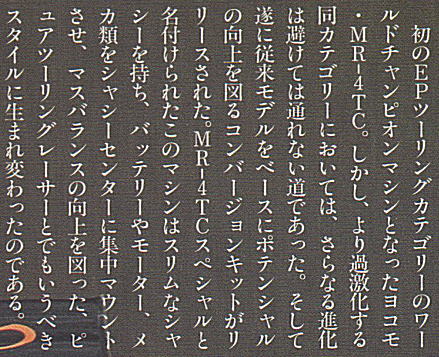 初のEPツーリングカテゴリーのワー
ルドチャンピオンマシンとなったヨコモ
・MR-4TC。しかし、より過激化する
同カテゴリーにおいては、さらなる進化
は避けては通れない道であった。そして
遂に従来モデルをベースにポテンシャル
の向上を図るコンバージョンキットがリ
リースされた。MR-4TCスペシャルと
名付けられたこのマシンはスリムなシャ
シーを持ち、バッテリーやモーター、メ
カ類をシャシーセンターに集中マウント
させ、マスバランスの向上を図った、ピ
ュアツーリングレーサーとでもいうべき
スタイルに生まれ変わったのである。